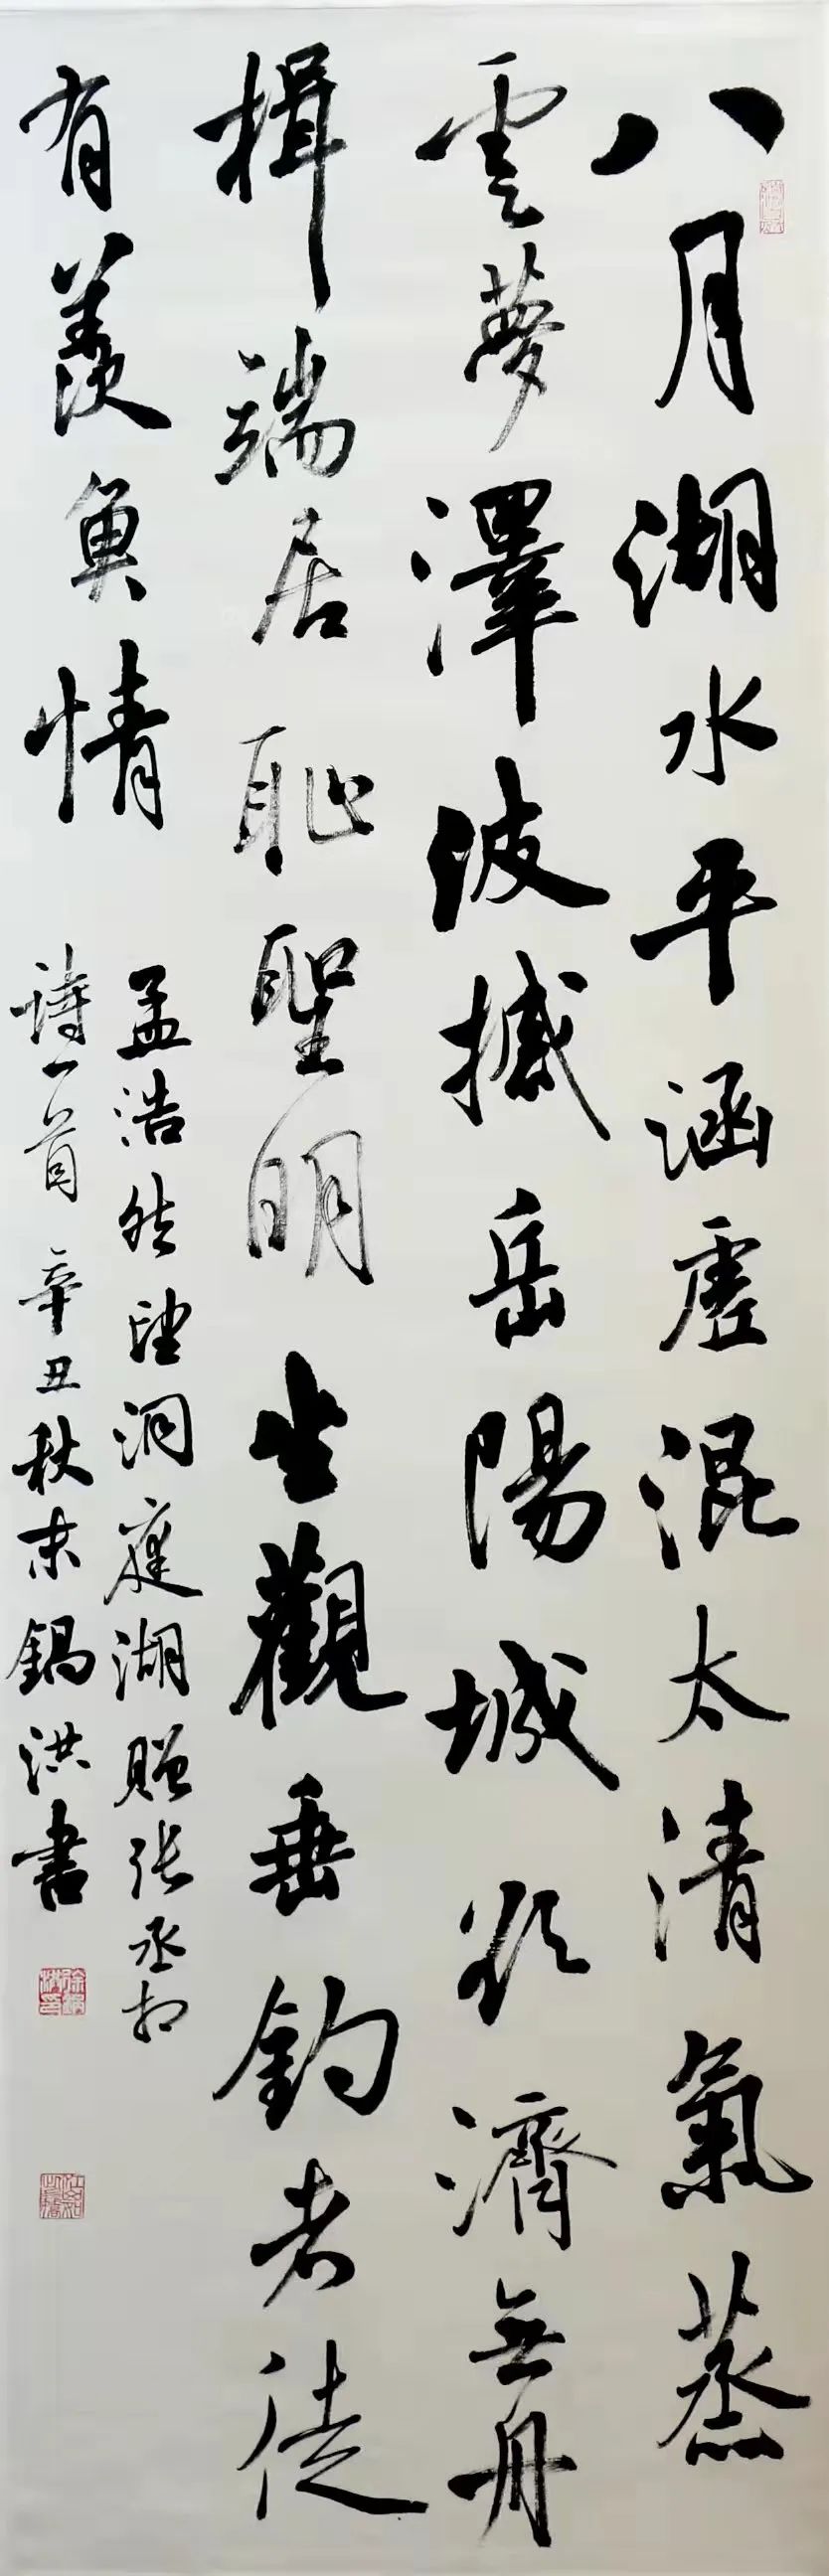 八月湖水平涵虛混太清氣蒸
雲夢澤波撼岳陽城欲濟無舟
楫端居恥聖明坐觀垂釣者徒
有羨魚情
孟浩然望洞庭湖贈张丞相
詩一首辛丑秋末鍋洪書